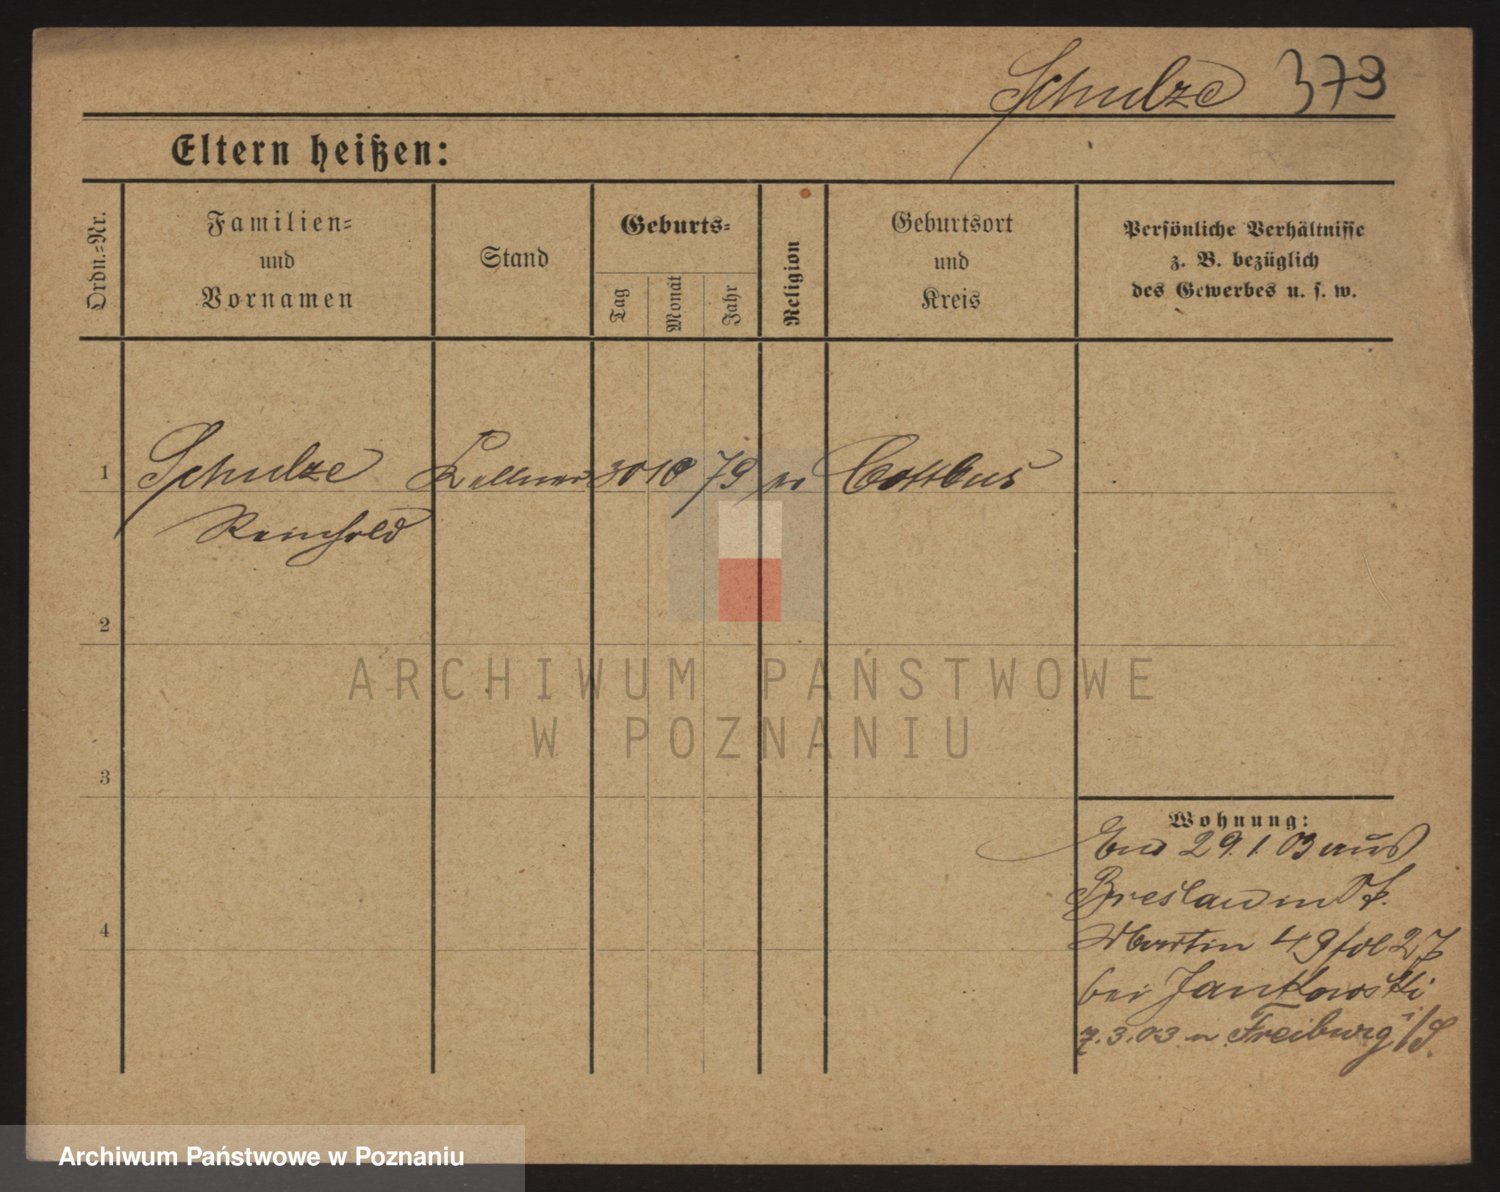 Schulze 379
Eltern heißen:
Ordn.=Nr.
Familien=
und
Vornamen
Stand
Geburts=
Tag
Monat
Jahr
Religion
Geburtsort
und
Kreis
Persönliche Verhältnisse
z. B. bezüglich
des Gewerbes u. s. w.
1 Schulze Kellner 30 10 79 ev Cottbus
Reinhold
2
3
4
Wohnung:
29.1.03 aus
Breslau
Martin 49 27
bei Jankowski
7.3.03 n Freiburg i/S.
ARCHIWUM PAŃSTWOWE
W POZNANIU
Archiwum Państwowe w Poznaniu